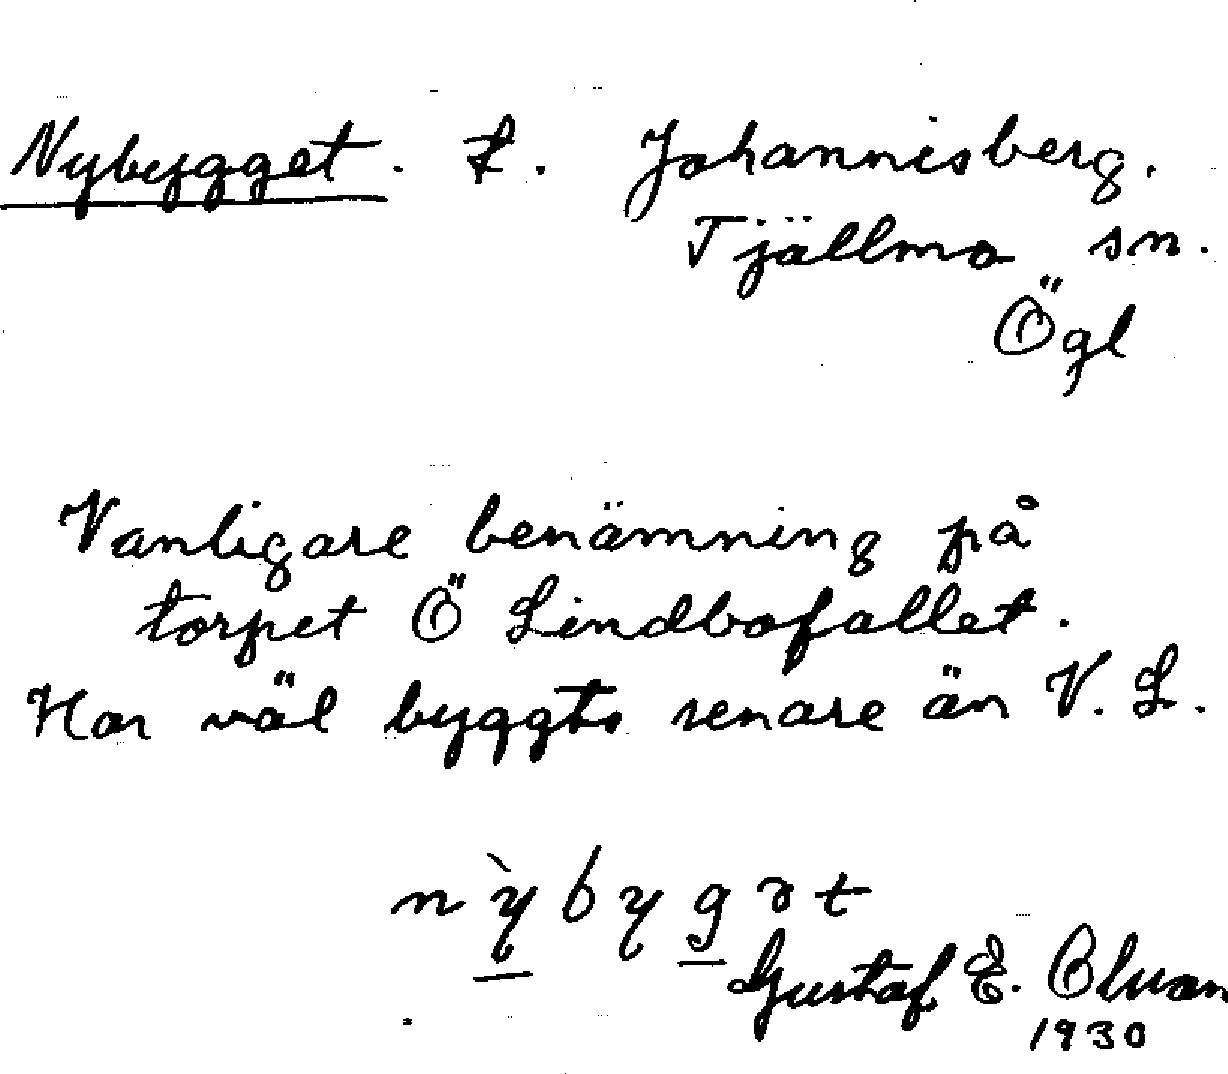 Nybygget. t. Johannisberg.
Tjällmo sn.
Ögl
Vanligare benämning på
torpet Ö Lindbofallet.
Har väl byggts senare än V. L.
nỳbygət
Gustaf E.
1930